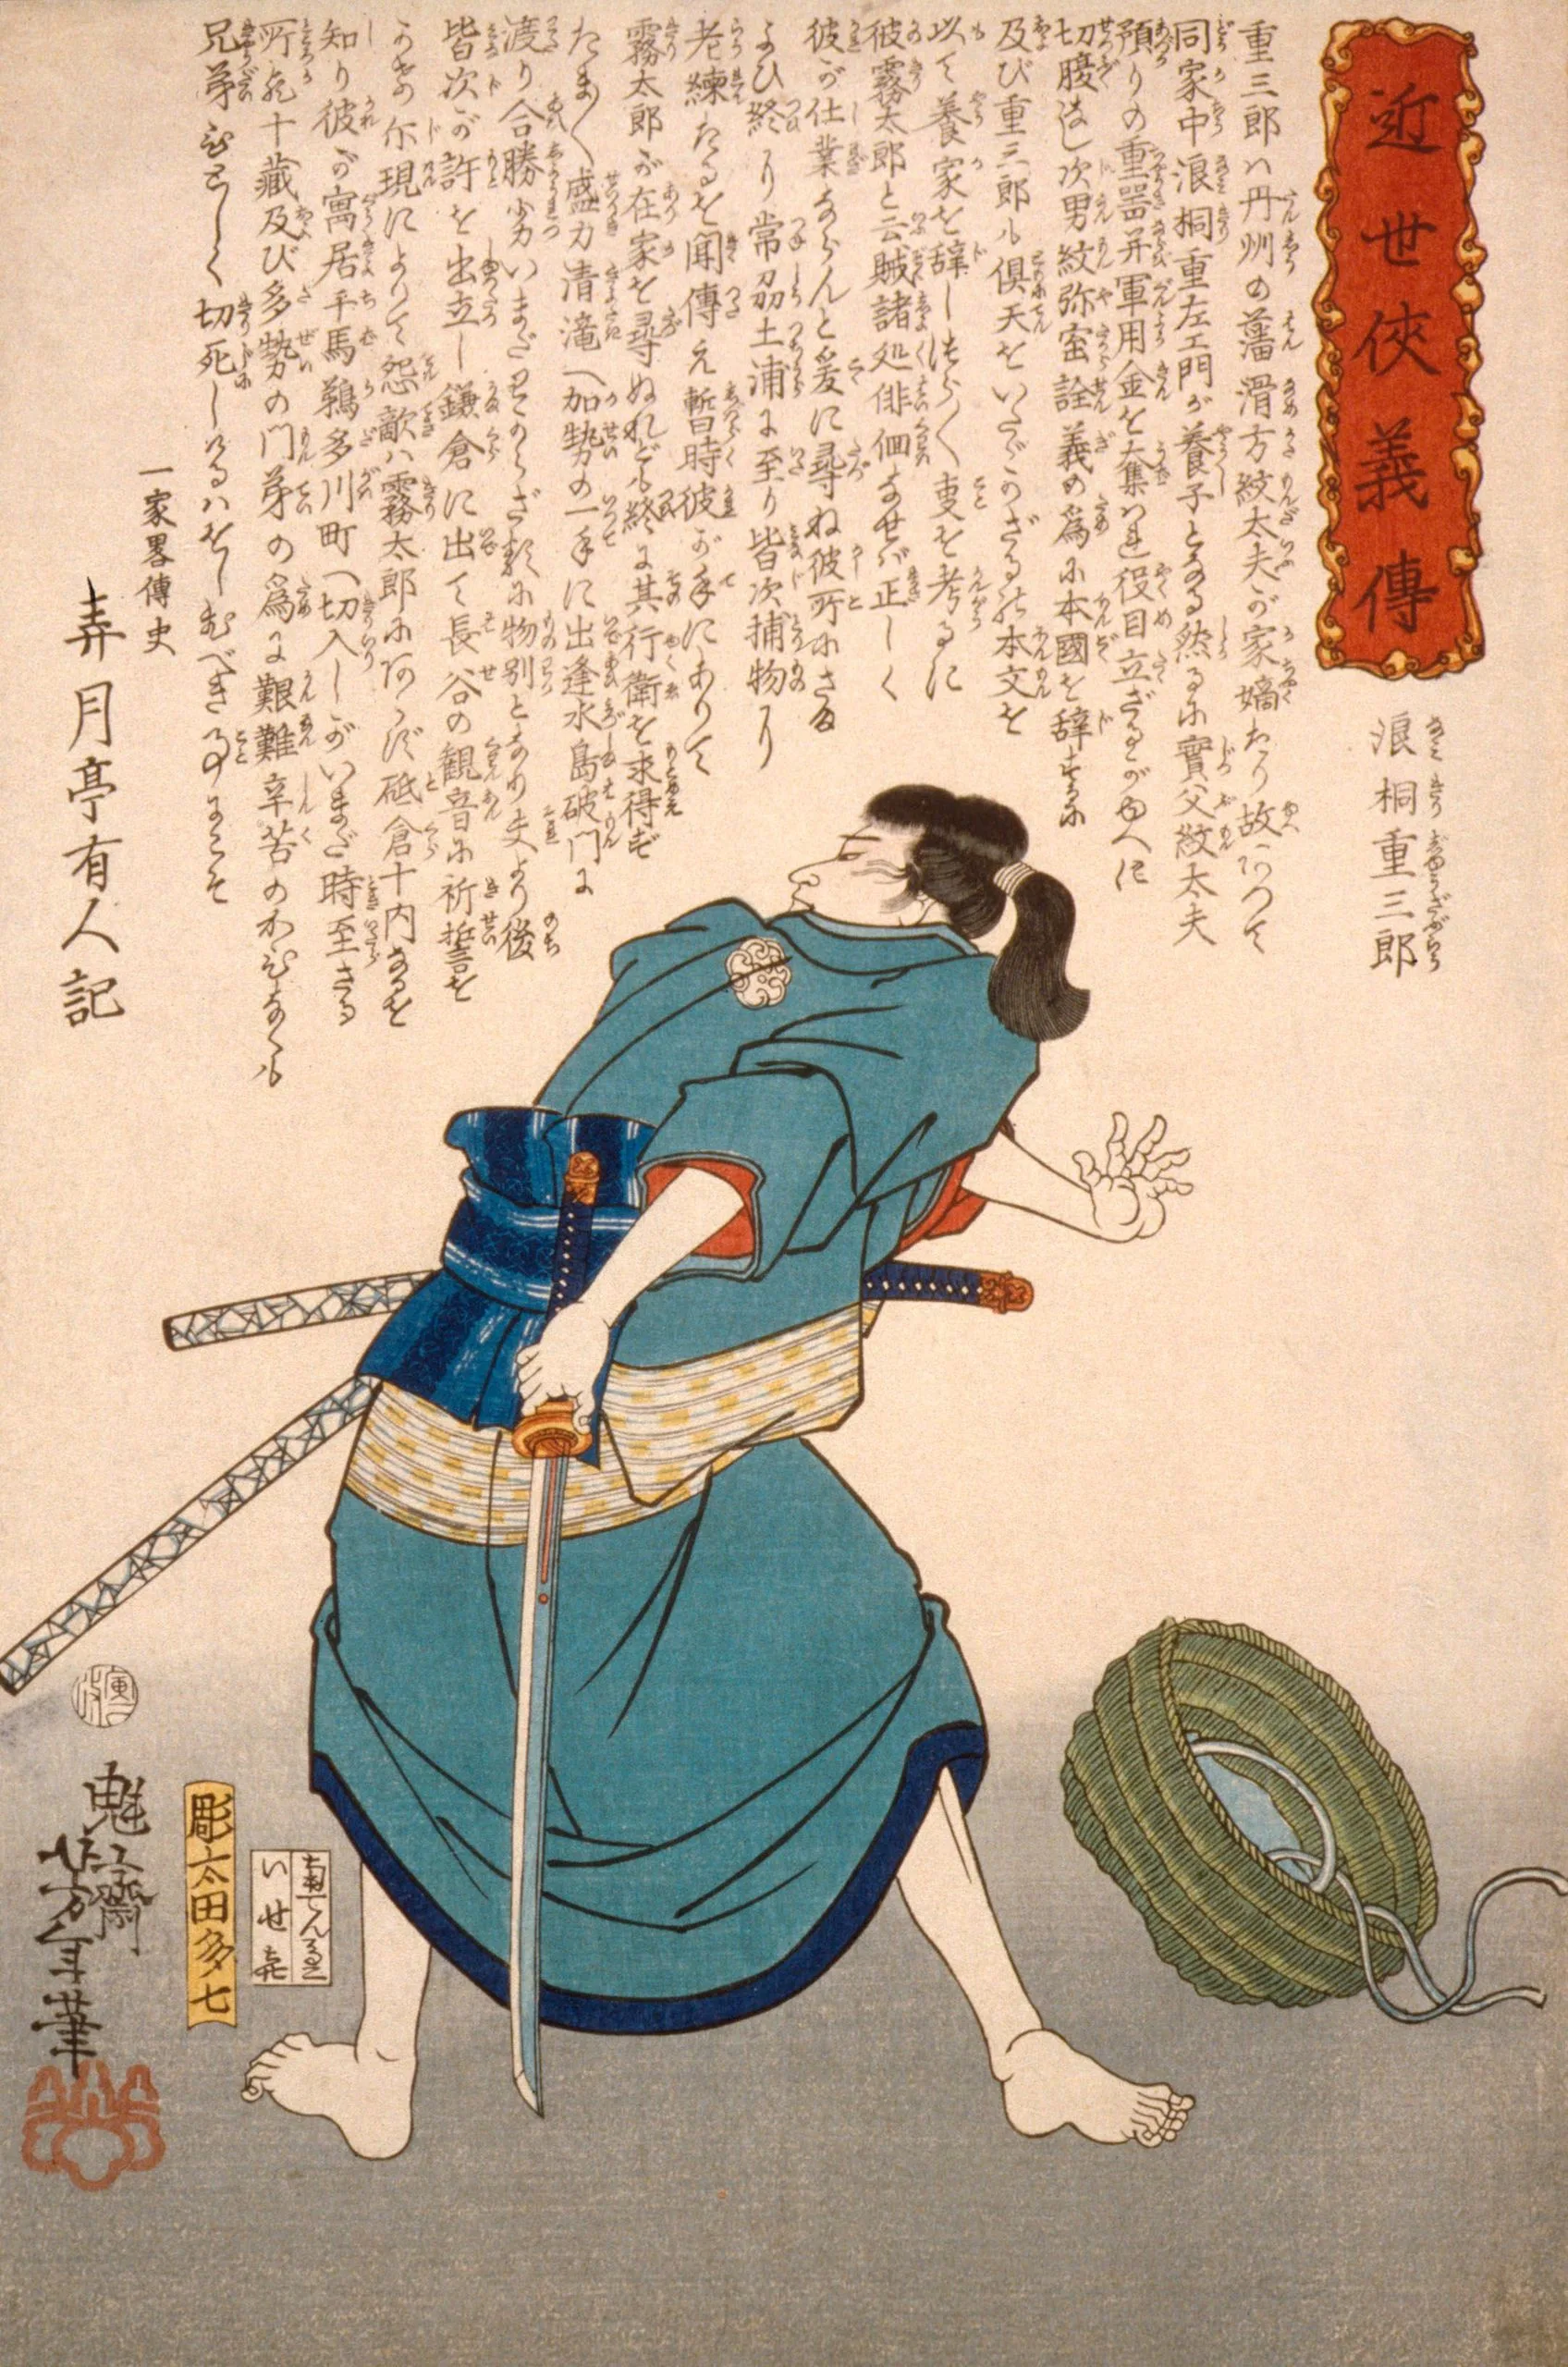 近世俠義傳
浪桐重三郎
重三郎ハ丹州の藩滑方紋太夫が家嫡なり故あつて
同家中浪桐重左エ門が養子となる然るに實父紋太夫
預りの重噐并軍用金を奪はれ役目立ざるがゆへに
切腹なし次男紋弥密詮義の爲に本國を辞す
及び重三郎も俱天をいたゞかざる本文を
以て養家を辞しつら〱叓を考るに
彼霧太郎と云賊諸処俳佪なせバ正しく
彼が仕業ならんと爰に尋ね彼所にさま
よひ終り常刕土浦に至り皆次捕物に
老練たるを聞傳え暫時彼が手にありて
霧太郎が在家を尋ぬれども終に其行衛を求得ず
たま〱盛力清滝へ加勢の一手に出逢水島破門に
渡り合勝劣いまだわからざるに物別となり夫より後
皆次が許を出立し鎌倉に出て長谷の観音に祈誓を
示現によりて怨敵ハ霧太郎にあらず砥倉十内なるを
知り彼が寓居平馬鵜多川町へ切入しがいまだ時至ざる
所況十藏及び多勢の門弟の爲に艱難辛苦の
兄弟むなしく切死しけるハをしむべき事にこそ
一家畧傳史
弄月亭有人記
魁斎芳年筆
彫太田多七
いせ喜